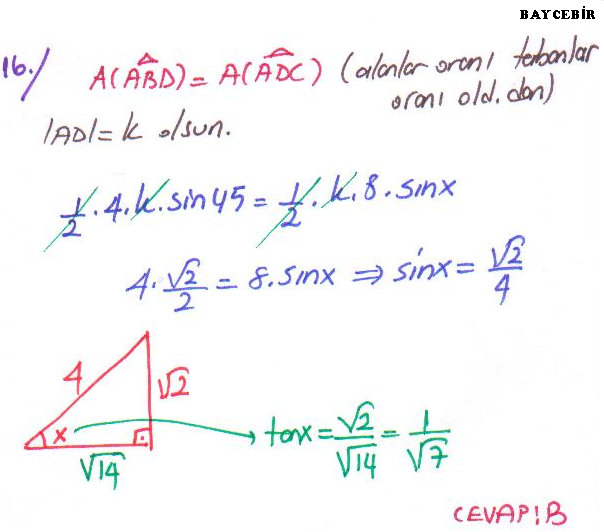 BAYCEBİR
16./ A(ABD) = A(ADC) (alanlar oranı tabanlar oranı old.dan)
|AD| = k olsun.
1/2 · 4 · k · sin45 = 1/2 · k · 8 · sinx
4 · √2/2 = 8 · sinx ⇒ sinx = √2/4
4
√2
x
√14
tanx = √2/√14 = 1/√7
CEVAP! B